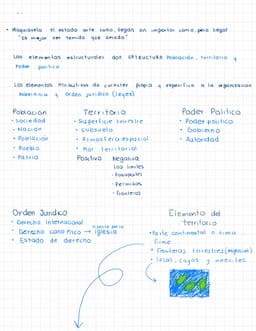 • Maquiavelo El estado ante todo, llegar sin importar como, pero llegar
"Es mejor ser temido que amado"
Los elementos estructurales dan estructura Población, territorio y
Poder político
Los elementos Atributivos da carácter propio y específico a la organización
soberanía y orden jurídico (leyes)
Población
• Sociedad
• Nación
• Población
• Pueblo
• Patria
Territorio
• Superficie terrestre
• subsuelo
• Atmosfera espacial
• Mar territorial
Positiva Negativa
los limites
Poder Político
• Poder político
• Gobierno
• Autoridad
Orden Jurídico
• Derecho internacional
• Derecho canonico → iglesia
• Estado de derecho
Elementos del
territorio
• Parte continental o tierra
firme
• Fronteras terrestres
• Islas, cayos y arrecifes